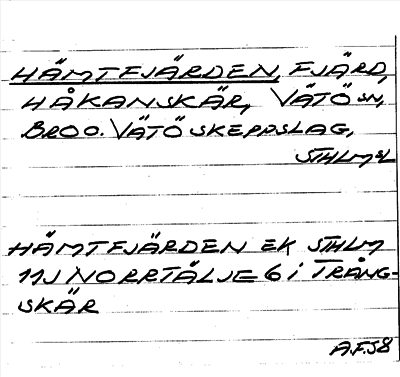 HÄMTFJÄRDEN, FJÄRD,
HÅKANSKÄR, VÄTÖ SN,
BRO O. VÄTÖ SKEPPSLAG,
STHLMS L
HÄMTFJÄRDEN EK STHLM
11J NORRTÄLJE 6 i TRÅNG-
SKÄR
A.F. 58